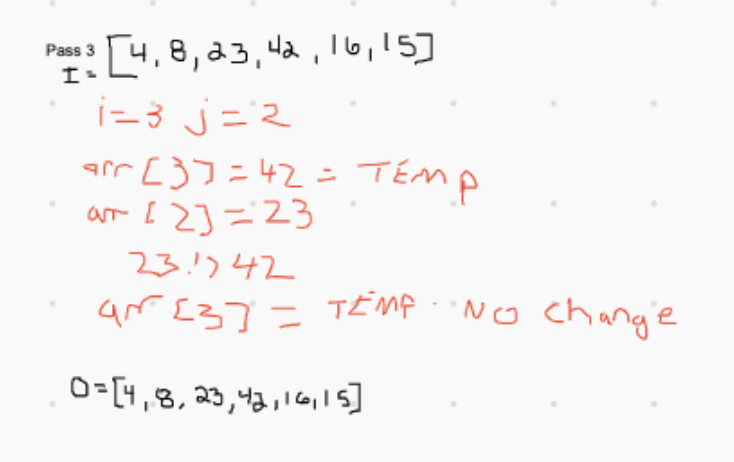 Pass 3 [4, 8, 23, 42, 16, 15]
I=
i=3 j=2
arr[3]=42=TEMP
arr[2]=23
23!>42
arr[3] = TEMP. No change
O=[4, 8, 23, 42, 16, 15]